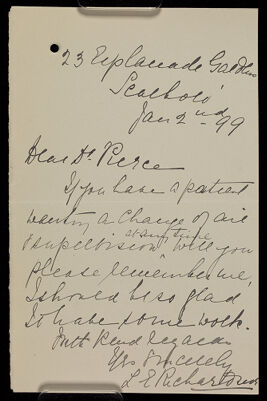 23 Esplanade Gardens
Scarboro'
Jan 2nd 99
Dear Dr. Pierce
If you have a patient
wanting a change of air
& supervision at any time will you
please remember me,
I should be so glad
to have some work.
With kind regards
Yrs Sincerely
L E Richardson